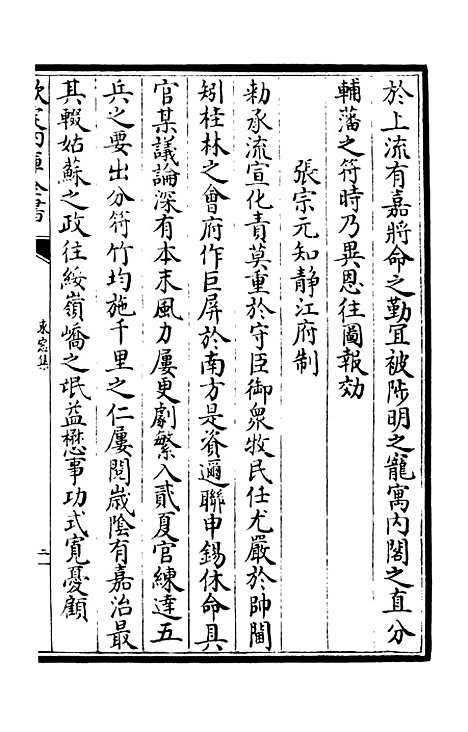 於上流有嘉將命之勤宜被陟明之寵寓内閣之直分
輔藩之符時乃異恩往圖報効
張宗元知静江府制
勅承流宣化責莫重於守臣御衆牧民任尤嚴於帥閫
矧桂林之會府作巨屏於南方是資邇聯申錫休命具
官某議論深有本末風力屢更劇繁入貳夏官練達五
兵之要出分符竹均施千里之仁屢閲嵗陰有嘉治最
其輟姑蘇之政往綏嶺嶠之氓益懋事功式寛憂顧
欽定四庫全書
東窓集
二